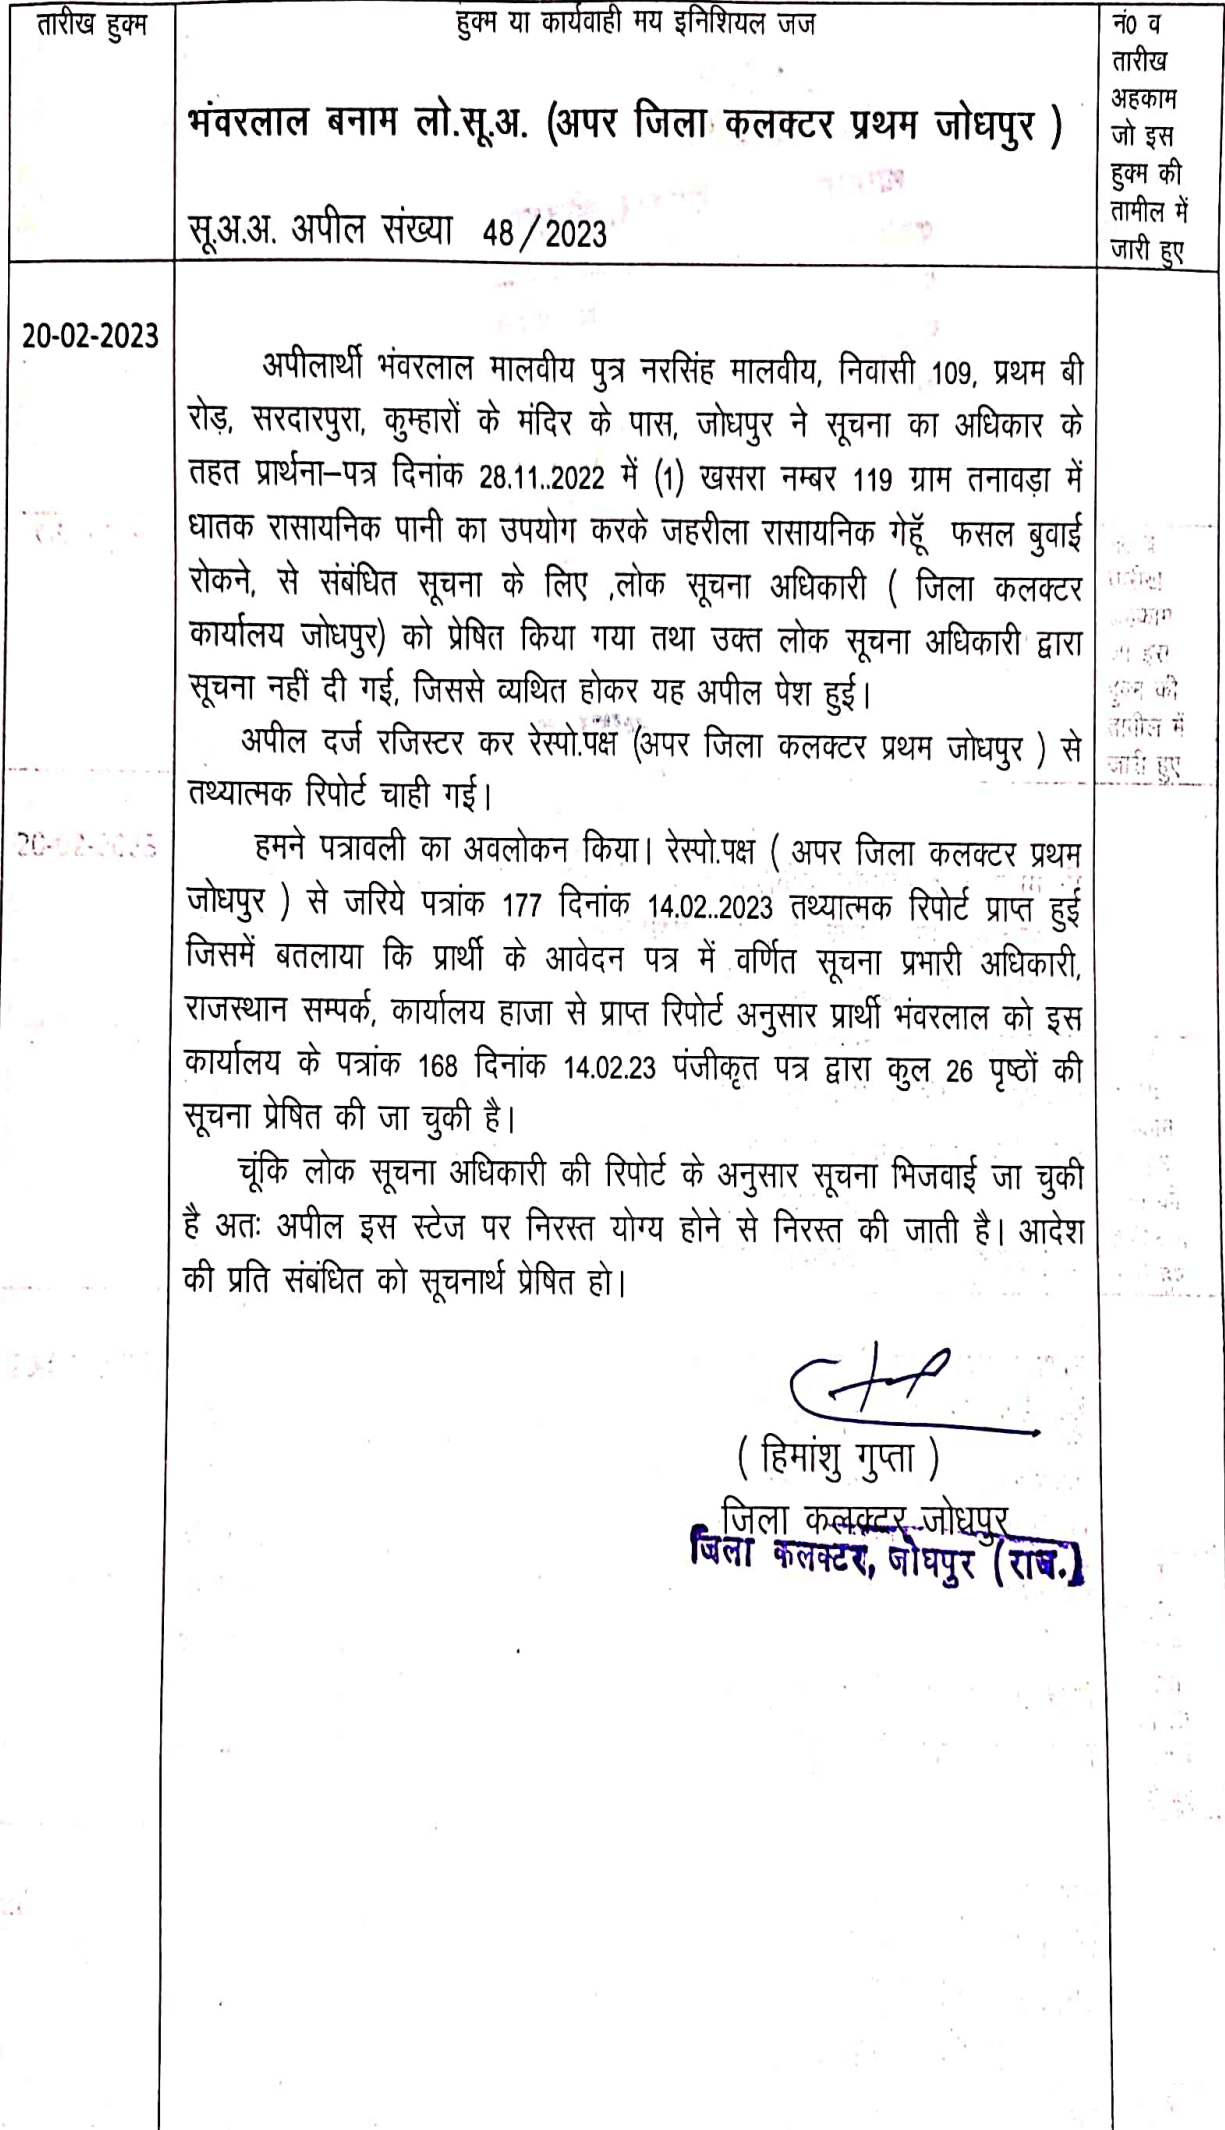 तारीख हुक्म
हुक्म या कार्यवाही मय इनिशियल जज
नं0 व
तारीख
अहकाम
जो इस
हुक्म की
तामील में
जारी हुए
भंवरलाल बनाम लो.सू.अ. (अपर जिला कलक्टर प्रथम जोधपुर )
सू.अ.अ. अपील संख्या 48/2023
20-02-2023
अपीलार्थी भंवरलाल मालवीय पुत्र नरसिंह मालवीय, निवासी 109, प्रथम बी
रोड़, सरदारपुरा, कुम्हारों के मंदिर के पास, जोधपुर ने सूचना का अधिकार के
तहत प्रार्थना–पत्र दिनांक 28.11..2022 में (1) खसरा नम्बर 119 ग्राम तनावड़ा में
धातक रासायनिक पानी का उपयोग करके जहरीला रासायनिक गेहूॅ फसल बुवाई
रोकने, से संबंधित सूचना के लिए ,लोक सूचना अधिकारी ( जिला कलक्टर
कार्यालय जोधपुर) को प्रेषित किया गया तथा उक्त लोक सूचना अधिकारी द्वारा
सूचना नहीं दी गई, जिससे व्यथित होकर यह अपील पेश हुई।
अपील दर्ज रजिस्टर कर रेस्पो.पक्ष (अपर जिला कलक्टर प्रथम जोधपुर ) से
तथ्यात्मक रिपोर्ट चाही गई।
हमने पत्रावली का अवलोकन किया। रेस्पो.पक्ष ( अपर जिला कलक्टर प्रथम
जोधपुर ) से जरिये पत्रांक 177 दिनांक 14.02..2023 तथ्यात्मक रिपोर्ट प्राप्त हुई
जिसमें बतलाया कि प्रार्थी के आवेदन पत्र में वर्णित सूचना प्रभारी अधिकारी,
राजस्थान सम्पर्क, कार्यालय हाजा से प्राप्त रिपोर्ट अनुसार प्रार्थी भंवरलाल को इस
कार्यालय के पत्रांक 168 दिनांक 14.02.23 पंजीकृत पत्र द्वारा कुल 26 पृष्ठों की
सूचना प्रेषित की जा चुकी है।
चूंकि लोक सूचना अधिकारी की रिपोर्ट के अनुसार सूचना भिजवाई जा चुकी
है अतः अपील इस स्टेज पर निरस्त योग्य होने से निरस्त की जाती है। आदेश
की प्रति संबंधित को सूचनार्थ प्रेषित हो।
( हिमांशु गुप्ता )
जिला कलक्टर जोधपुर
जिला कलक्टर, जोधपुर (राज.)